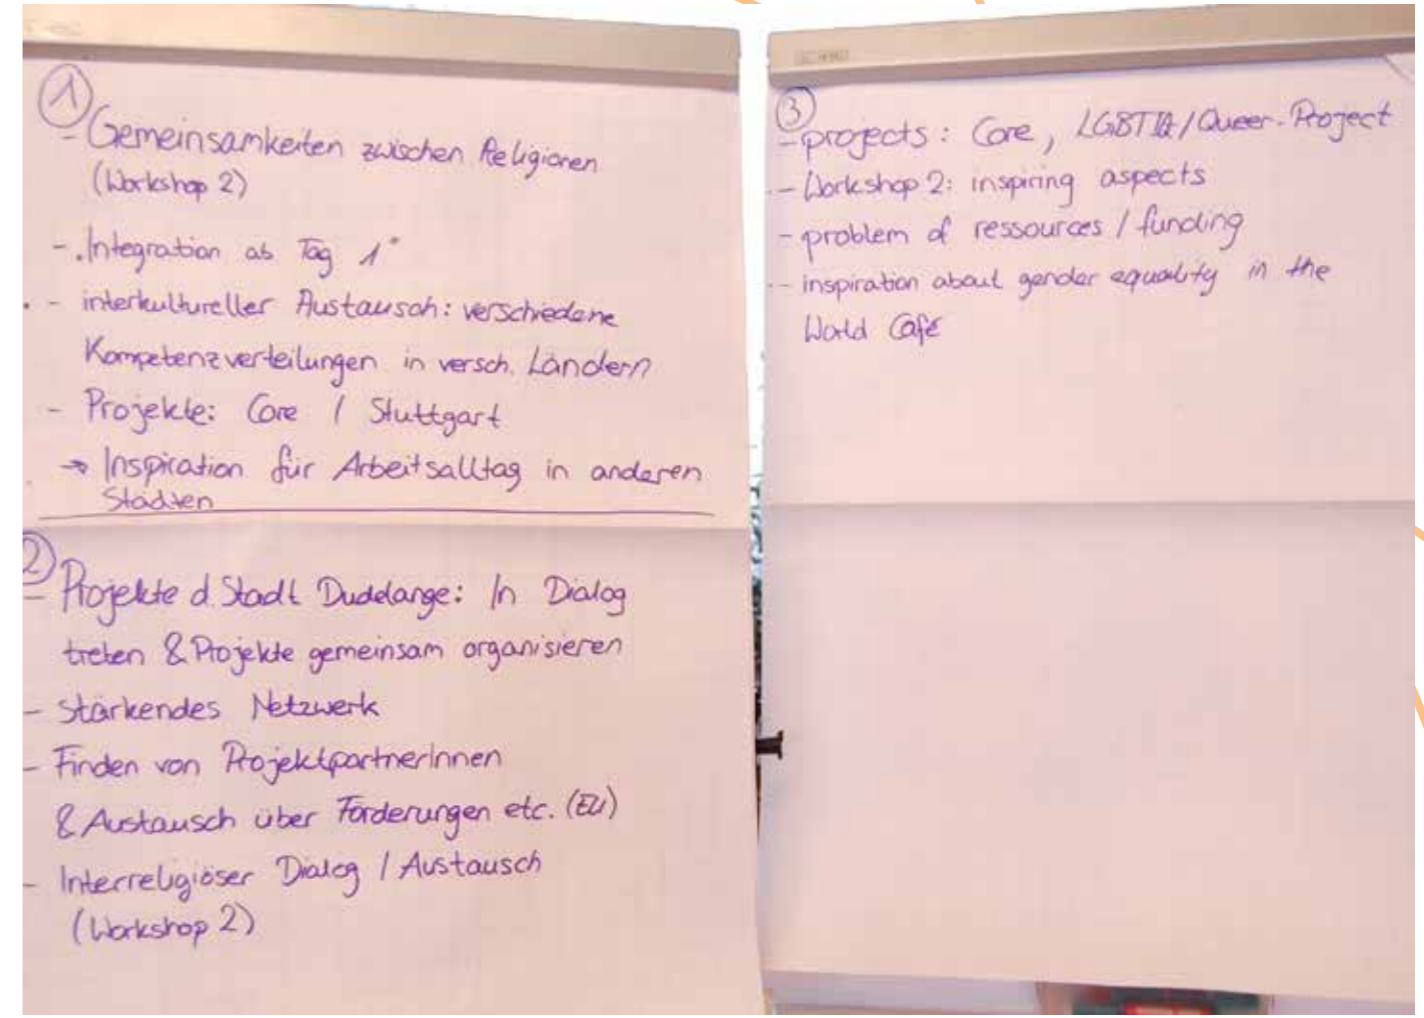 ①
- Gemeinsamkeiten zwischen Religionen
(Workshop 2)
- "Integration ab Tag 1"
- interkultureller Austausch: verschiedene
Kompetenzverteilungen in versch. Ländern
- Projekte: Core / Stuttgart
→ Inspiration für Arbeitsalltag in anderen
Städten
②
- Projekte d. Stadt Dudelange: In Dialog
treten & Projekte gemeinsam organisieren
- Stärkendes Netzwerk
- Finden von ProjektpartnerInnen
& Austausch über Förderungen etc. (EU)
- Interreligiöser Dialog / Austausch
(Workshop 2)
③
- projects: Core, /Queer-Project
- Workshop 2: inspiring aspects
- problem of ressources / funding
- inspiration about gender equality in the
World Café